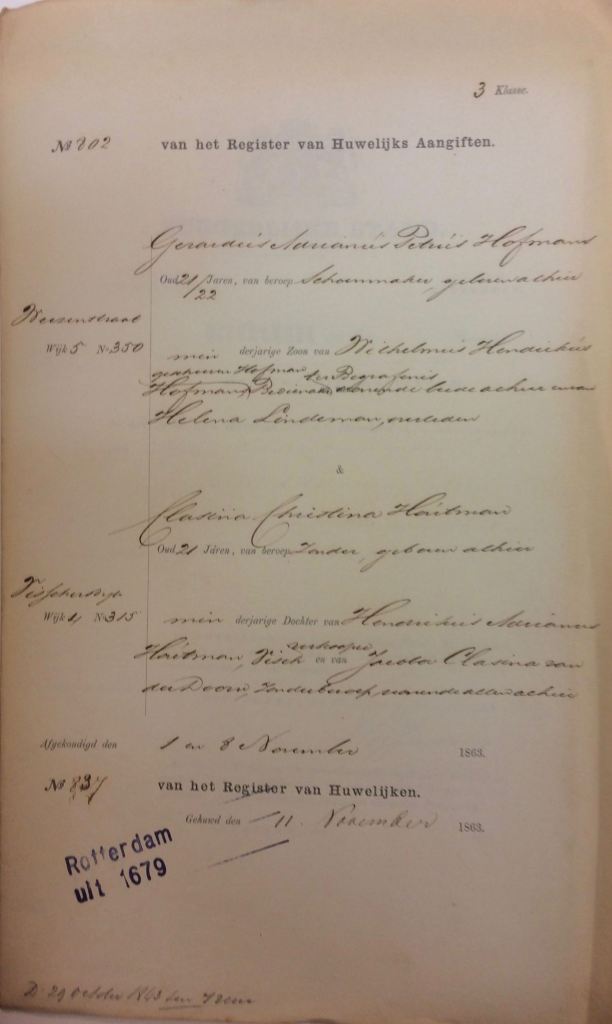 3 Klasse.
No 802 van het Register van Huwelijks Aangiften.
Gerardus Adrianus Petrus Hofmans
Oud 21/22 Jaren, van beroep Schoenmaker, geboren alhier
Weezenstraat
Wijk 5 No 350
min derjarige Zoon van Wilhelmus Hendrikus
Hofman ter Begrafenis
Hofman, Bedienaar, wonende beide alhier en van
Helena Lindeman, overleden
&
Clasina Christina Hoitman
Oud 21 Jaren, van beroep Zonder, geboren alhier
Visschersdijk
Wijk 4 No 315
min derjarige Dochter van Hendrikus Adrianus
verkooper
Hoitman, Visch en van Jacoba Clasina van
der Doorn, Zonder beroep, wonende allen alhier
Afgekondigd den 1 en 8 November 1863.
No 837 van het Register van Huwelijken.
Gehuwd den 11 November 1863.
Rotterdam
uit 1679
D. 29 October 1863 ten